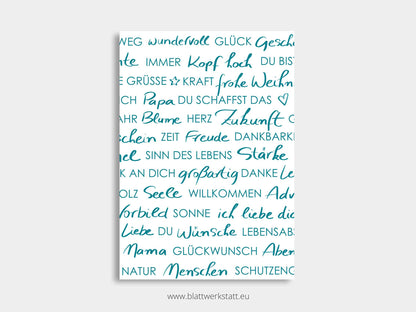 WEG wundervoll GLÜCK Gesche
nte IMMER Kopf hoch DU BIST
E GRÜSSE KRAFT frohe Weihn
CH Papa DU SCHAFFST DAS
AHR Blume HERZ Zukunft G
schein ZEIT Freude DANKBARKE
mel SINN DES LEBENS Stärke
K AN DICH großartig DANKE Le
OLZ Seele WILLKOMMEN Adv
Vorbild SONNE ich liebe dic
Liebe DU Wünsche LEBENSAB
Mama GLÜCKWUNSCH Aben
NATUR Menschen SCHUTZENG
www.blattwerkstatt.eu